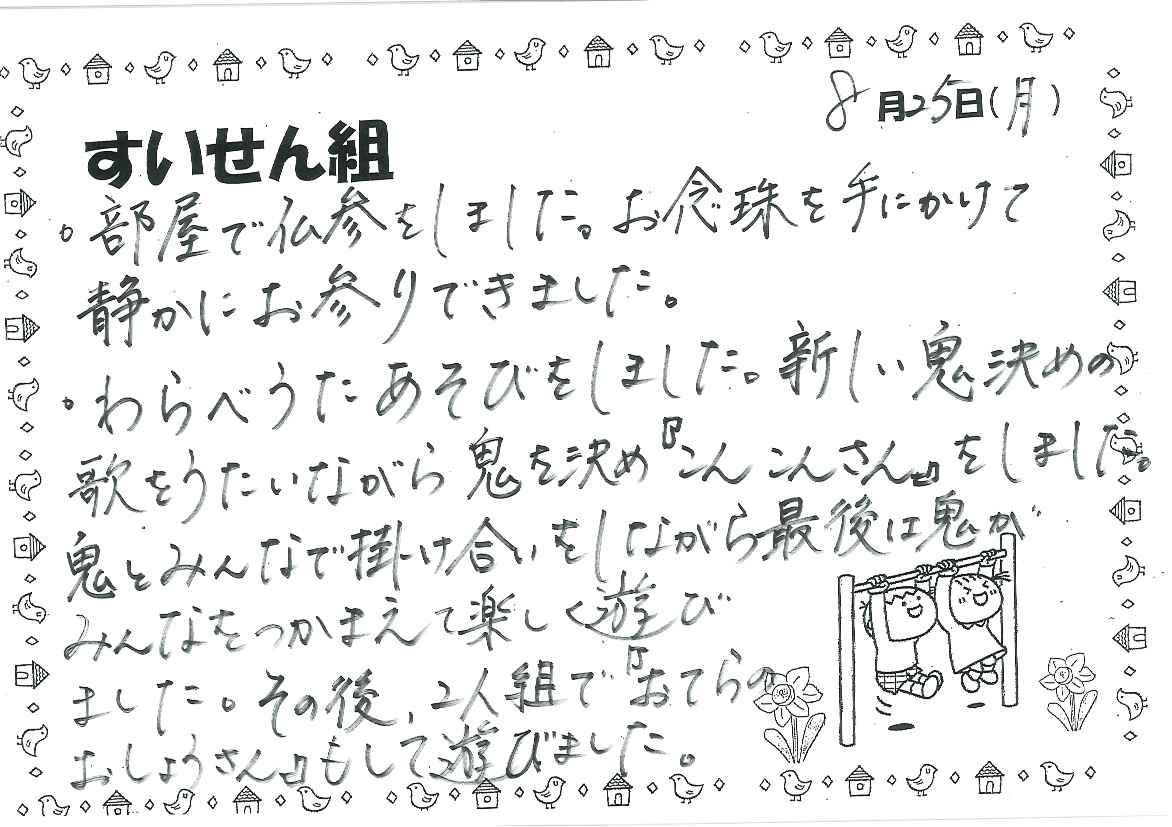 8月25日(月)
すいせん組
。部屋で仏参をしました。お念珠を手にかけて
静かにお参りできました。
。わらべうたあそびをしました。新しい鬼決めの
歌をうたいながら鬼を決め『こんこんさん』をしました。
鬼とみんなで掛け合いをしながら最後は鬼が
みんなをつかまえて楽しく遊び
ました。その後、2人組で『おてらの
おしょうさん』もして遊びました。